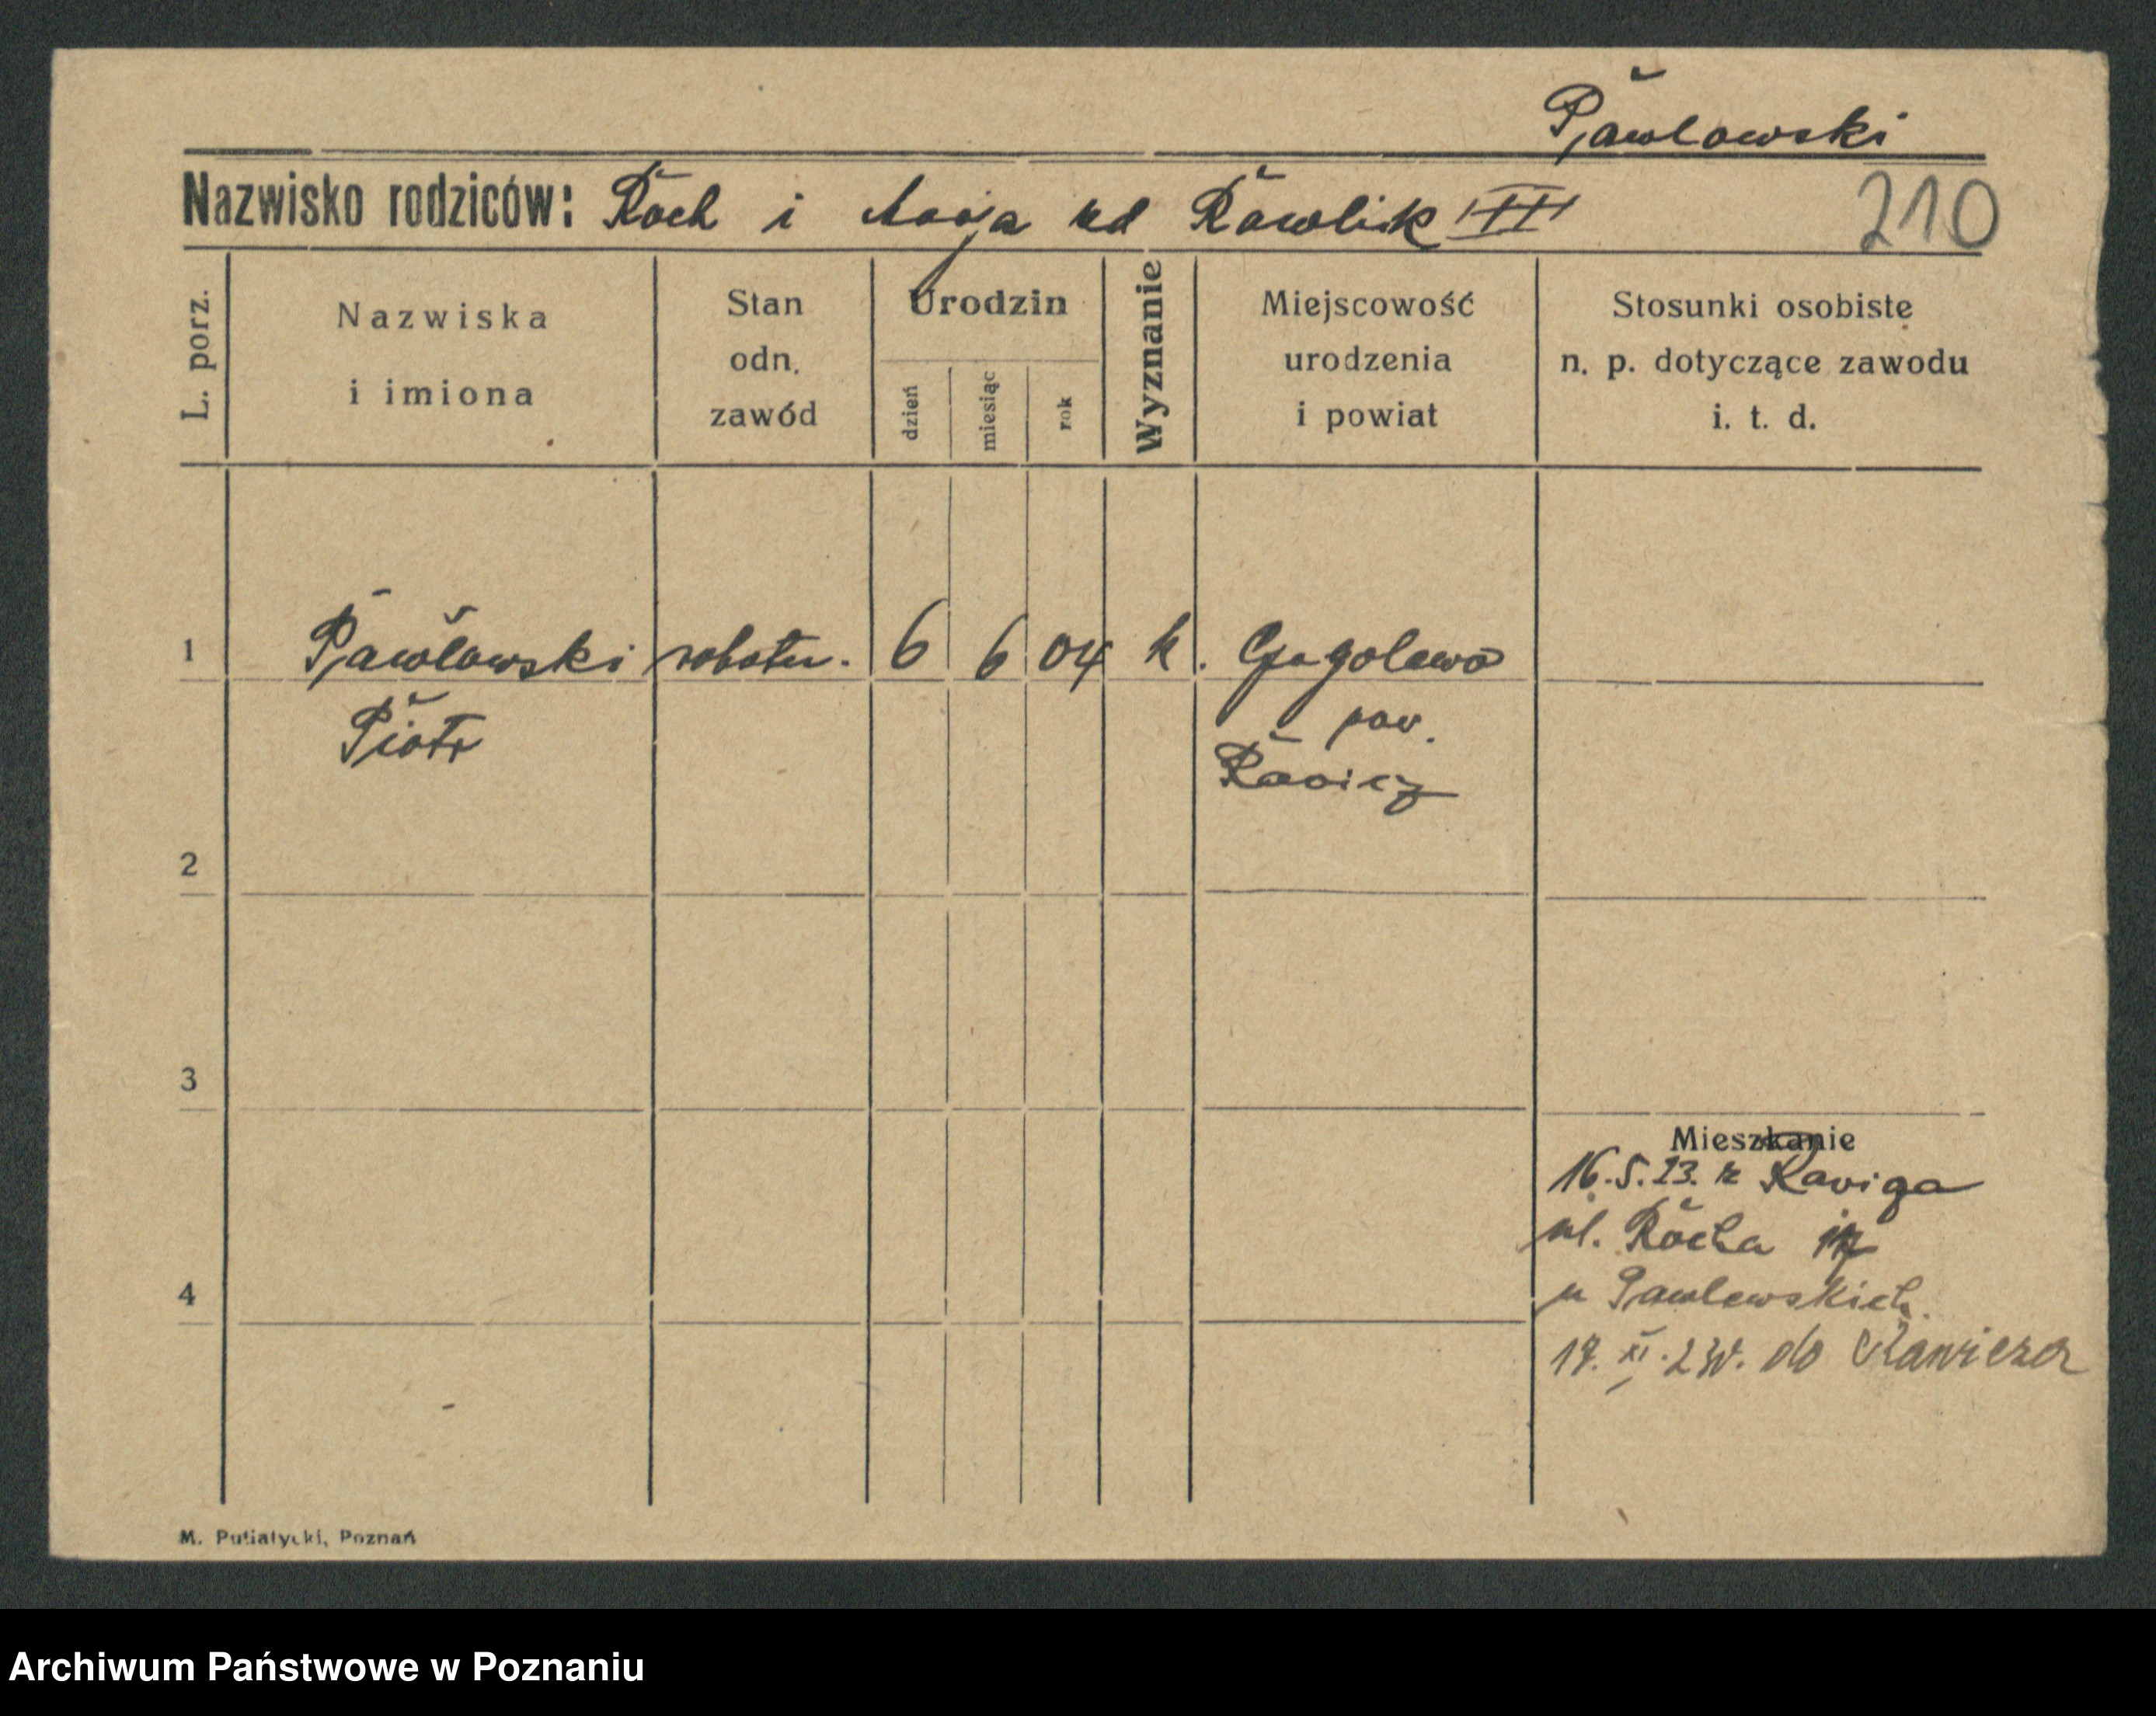 Pawlowski
Nazwisko rodziców: Roch i Marja ud Rawlik III
210
L. porz.
Nazwiska i imiona
Stan odn. zawód
Urodzin
dzień
miesiąc
rok
Wyznanie
Miejscowość urodzenia i powiat
Stosunki osobiste n. p. dotyczące zawodu i. t. d.
1 Pawlowski robotn. 6 6 04 k. Gogolewo
Piotr pow.
Rawicz
2
3
Mieszkanie
16.5.23. z
ul. Rocha 17
u Pawlowskich
4
17. XI. do Rawicza
M. Putiatycki, Poznań
Archiwum Państwowe w Poznaniu